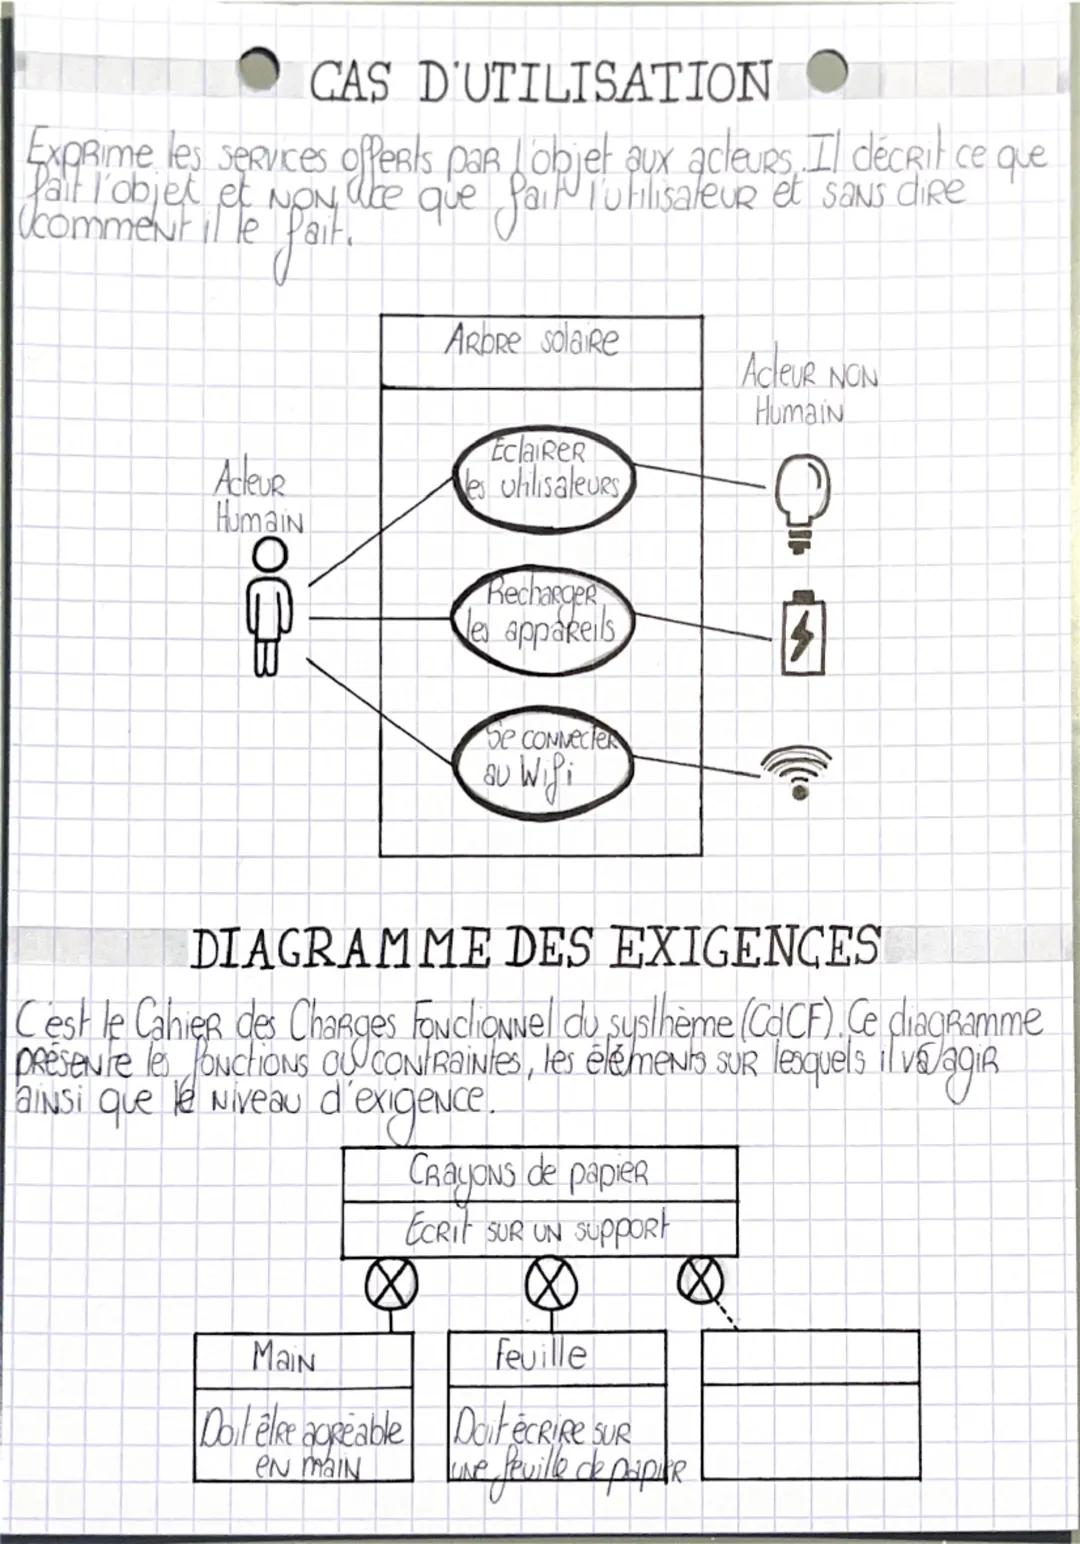 CAS D'UTILISATION
Exprime les services offerts par l'objet aux acteurs. Il décrit ce que
fait l'objet et non ce que fait l'utilisateur et sans dire
comment il le fait.
Arbre solaire
Acteur non
Humain
Eclairer
les utilisateurs
Acteur
Humain
Recharger
les appareils
Se connecter
au Wifi
DIAGRAMME DES EXIGENCES
C'est le Cahier des Charges Fonctionnel du systhème (CdCF). Ce diagramme
présente les fonctions ou contraintes, les éléments sur lesquels il va agir
ainsi que le niveau d'exigence.
Crayons de papier
Ecrit sur un support
Main
Feuille
Doit être agréable
en main
Doit écrire sur
une feuille de papier